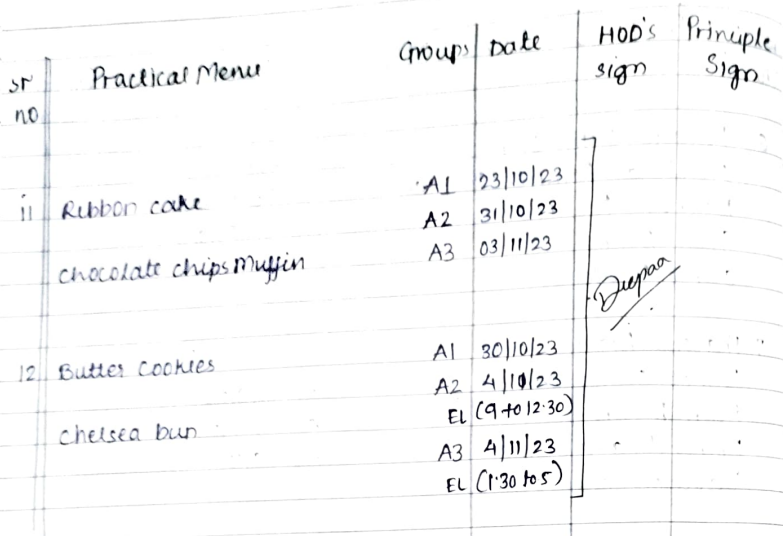 sr no | Practical Menu | Groups | Date | HOD's sign | Principle Sign
11 Ribbon cake A1 23/10/23
A2 31/10/23
Chocolate chips Muffin A3 03/11/23
Deepaa
12 Butter Cookies A1 30/10/23
A2 4/10/23
EL (9 to 12.30)
Chelsea bun
A3 4/11/23
EL (1.30 to 5)